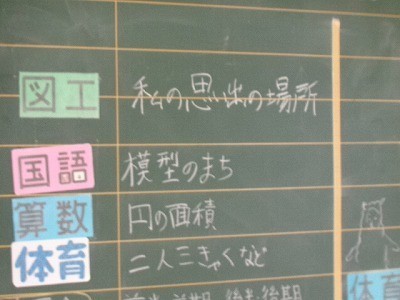 図工 私の思い出の場所
国語 模型のまち
算数 円の面積
体育 二人三きゃくなど
体育